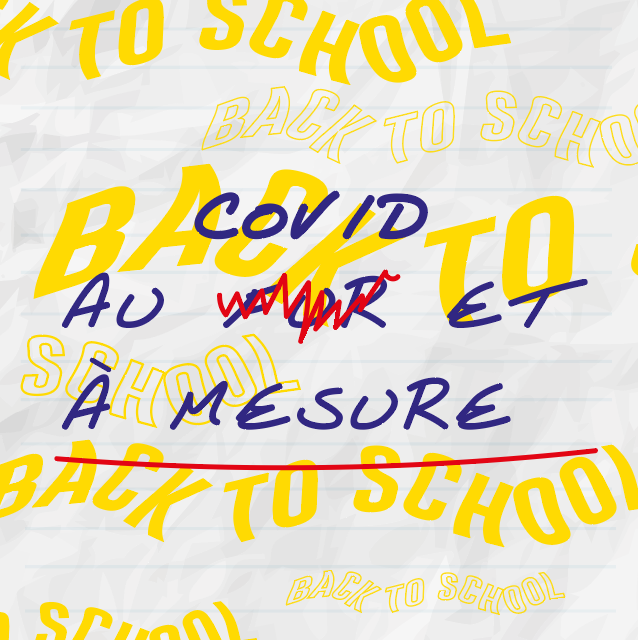 K TO SCHOOL
BACK TO SCHOO
BACK TO
COVID
AU FOR ET
SCHOOL
À MESURE
BACK TO SCHOOL
BACK TO SCHOOL
SCHOOL